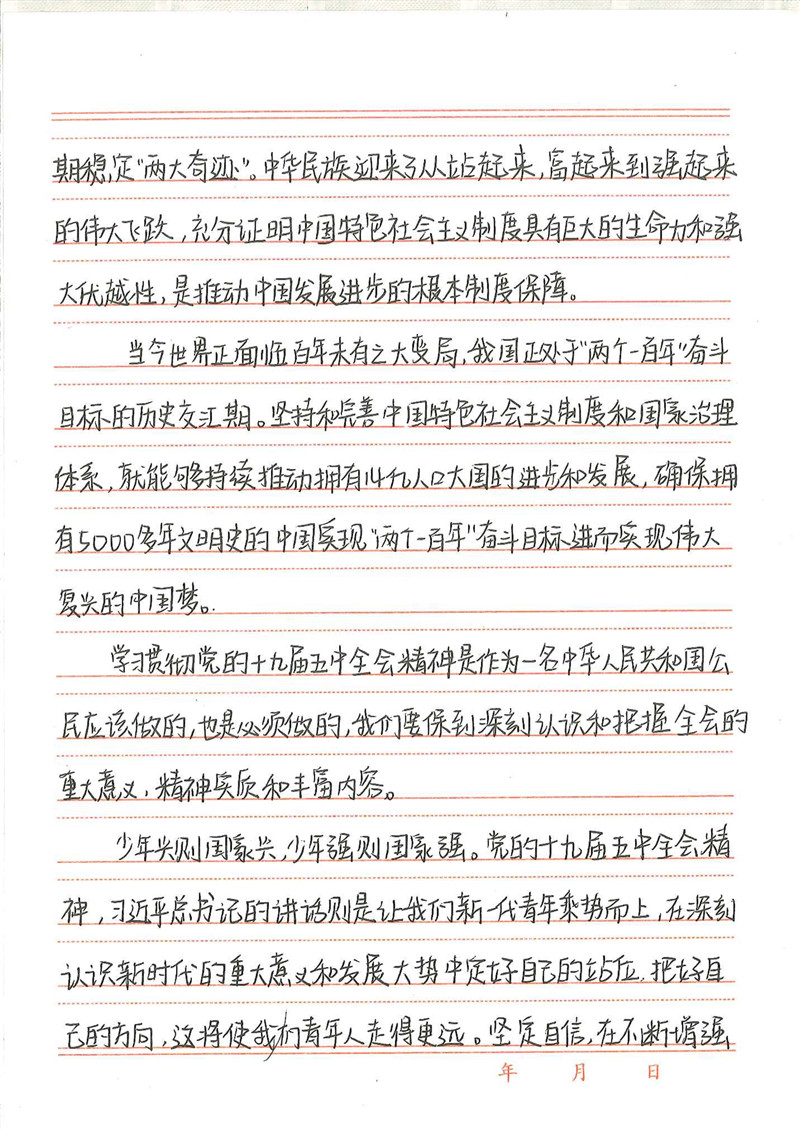 期稳定“两大奇迹”。中华民族迎来了从站起来,富起来到强起来
的伟大飞跃,充分证明中国特色社会主义制度具有巨大的生命力和强
大优越性,是推动中国发展进步的根本制度保障。
当今世界正面临百年未有之大变局,我国正处于“两个一百年”奋斗
目标的历史交汇期。坚持和完善中国特色社会主义制度和国家治理
体系,就能够持续推动拥有14亿人口大国的进步和发展,确保拥
有5000多年文明史的中国实现“两个一百年”奋斗目标进而实现伟大
复兴的中国梦。
学习贯彻党的十九届五中全会精神是作为一名中华人民共和国公
民应该做的,也是必须做的,我们要保到深刻认识和把握全会的
重大意义,精神实质和丰富内容。
少年兴则国家兴,少年强则国家强。党的十九届五中全会精
神,习近平总书记的讲话则是让我们新一代青年乘势而上,在深刻
认识新时代的重大意义和发展大势中定好自己的站位,把好自
己的方向,这将使我们青年人走得更远。坚定自信,在不断增强
年 月 日